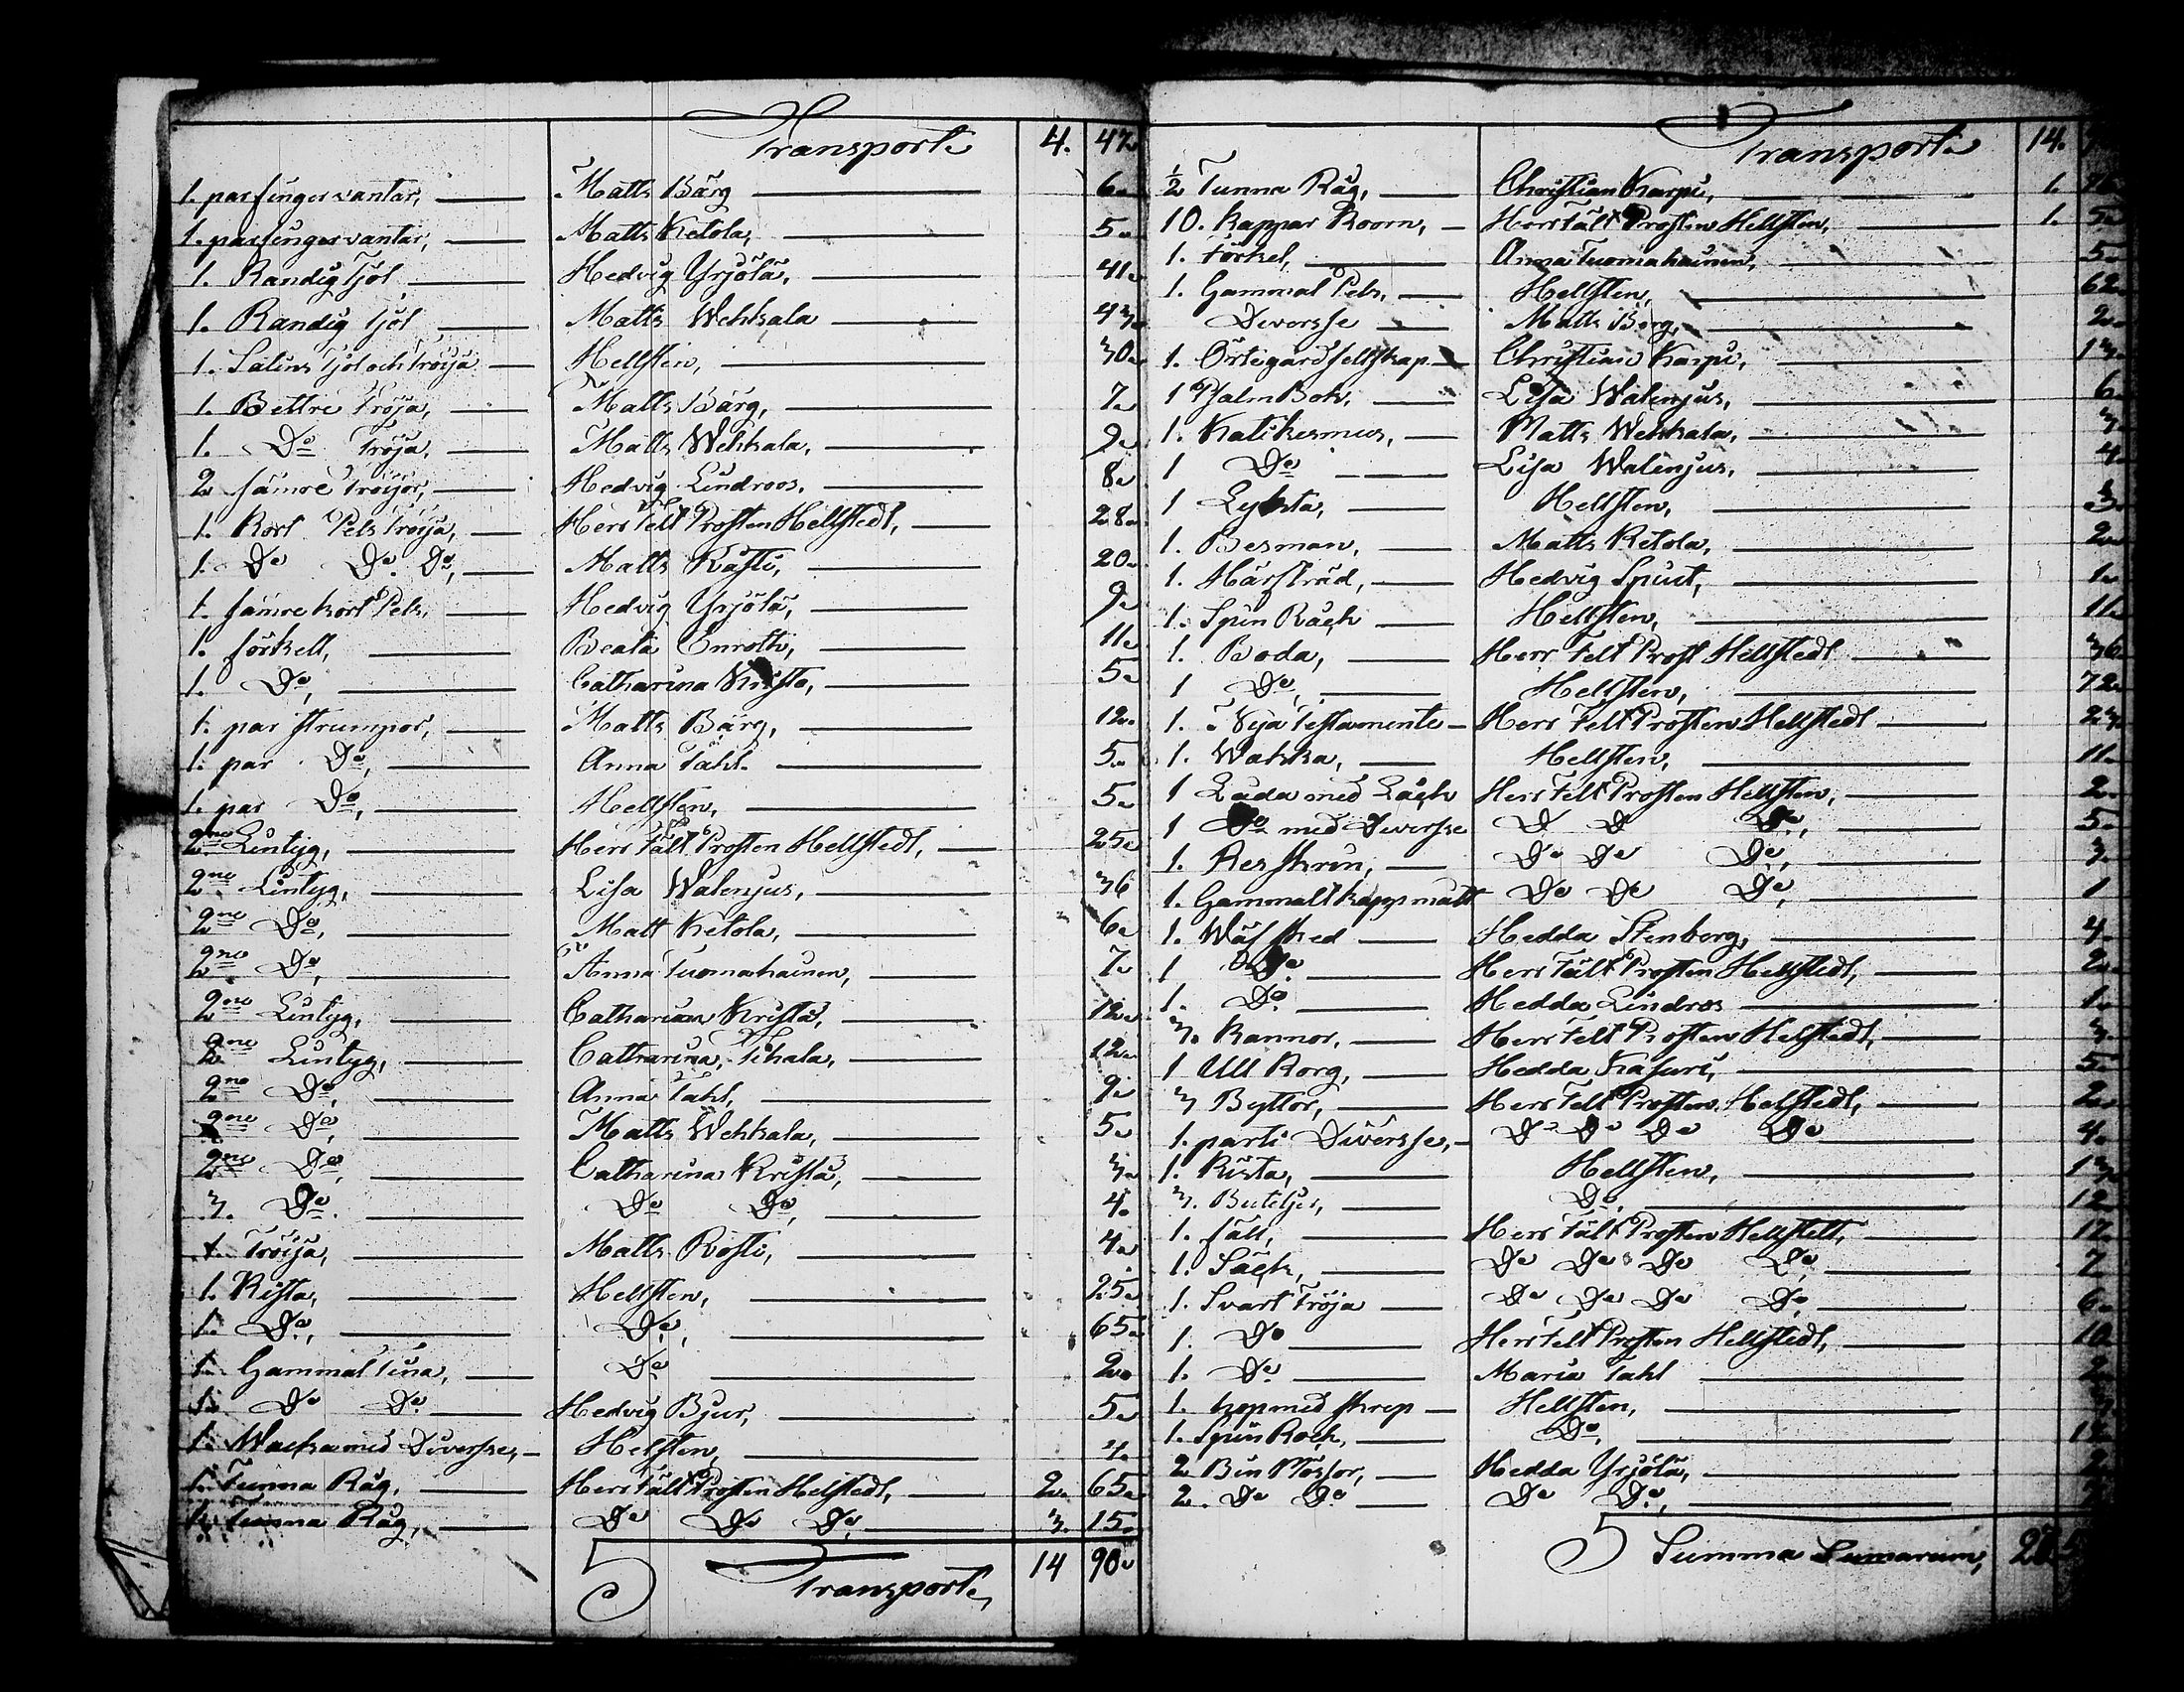 Transport 4. 47.
1. par finger vantar, Matts Bärg 6.
1. par finger vantar, Matts Ketola, 5.
1. Randig Tjol Hedvig Yrjölä, 41.
1. Randig Tjol Matts Wehkala 43.
1. Salins Tjol och tröija Hellsten, 30.
1. Bettre Tröja, Matts Bärg, 7.
1. Do Tröja, Matts Wehkala, 9.
2 sämre Tröijor, Hedvig Lindroos. 8.
1. Kort Pels tröija, Herr Felt Prosten Hellstedt, 28.
1. Do Do. Do, Matts Rasti, 20.
1. sämre kort Pels. Hedvig Yrjölä, 9.
1. förkell, Beata Enroth, 11.
1. Do, Catharina Kristo, 5.
1. par strumpor, Matts Bärg, 12.
1. par Do, Anna Tahl. 5.
1. par Do, Hellsten, 5.
2ne Lintyg, Herr Fält Prosten Hellstedt, 25.
2ne Lintyg, Lisa Walenjus, 36
2ne Do, Matt Ketola, 6.
2ne Do, Anna Tuomahainen, 7.
2ne Lintyg, Catharina Kristä, 12.
2ne Lintyg, Cathrarina, Tihala, 12.
2ne Do, Anna Tahl, 9.
2ne Do, Matts Wehkala, 5.
2ne Do, Catharina Kristä, 3.
3. Do. Do Do, 4.
1. Tröija, Matts Rosti, 4.
1. Kista, Hellsten, 25.
1. Do, Do, 65.
1. Gammal Tina, Do 2.
1. Do Do Hedvig Bjur, 5.
1. Wacka med Diversse, Helsten,
1. Tunna Råg, Herr Fält Prosten Helstedt, 2. 65.
1. Tunna Råg, Do Do Do, 3. 15.
Transport, 14 90.
Transport. 14.
1/2 Tunna Råg, Christian Karpi, 1. 76.
10. kappar Koorn, Herr Tält Prosten Hellsten, 1. 5.
1. förkel, Anna Tuomahainen, 5.
1. Gammal Pels, Hellsten, 62.
Deversse Matts Berg, 2.
1. Örtegårdsellskap Christian Karpi, 13.
1 Psalm Bok, Lisa Walenjus, 6.
1. Katikesmus, Matts Wehkala, 3.
1 Do Lisa Walenjus, 4.
1 Lykta, Hellsten,
1. Besman, Matts Ketola, 2.
1. Härfträd, Hedvig Spint, 1.
1. Spin Rack Hellsten, 11.
1. Boda, Herr Felt Prost Hellstedt 36.
1 Do, Hellsten, 72.
1. Nya Testamente Herr Felt Prosten Hellstedt 23.
1. Wakka, Hellsten, 11.
1 Låda med Låck Herr Felt Prosten Hellsten, 2.
1 Do med Diversse D D Do, 5.
1. Res skrin, Do Do Do, 3.
1. Gammalt kapp mått Do Do Do, 1
1. Wäf sked Hedda Stenberg, 4.
1 Do Herr Fält Prosten Hellstedt, 2.
1. Do. Hedda Lindros 1.
3. Kannor, Herr Felt Prosten Helstedt, 3.
1 Ull Korg, Hedda Kasuri, 5.
3 Byttor, Herr Felt Prosten Helstedt, 2.
1. parti Diversse, Do Do Do Do 4.
1. Kista, Hellsten, 13.
3. Buteljer, Do, 12
1. fält, Herr Fält Prosten Hellstett, 17.
1. Säck, Do Do Do Do, 7
1. Svart Tröja Do Do Do Do, 6.
1. Do Herr Felt Prosten Hellstedt, 10.
1. Do. Maria Tahl 2.
1. hop med skrep Hellsten,
1. Spin Rock, Do, 12
2 Bin Mössor, Hedda Yrjölä, 2.
2. Do Do Do Do,
Summa Sumarum,